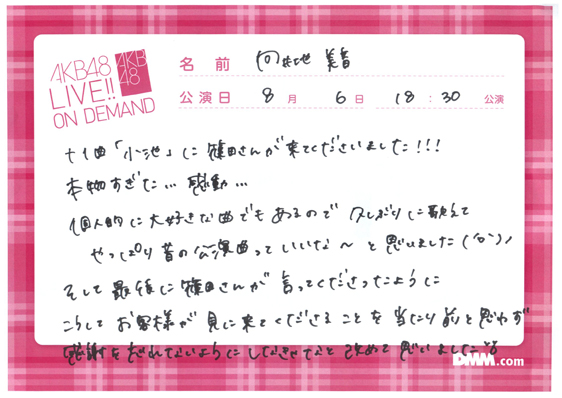 AKB48
LIVE!!
ON DEMAND
AKB
48
名前 向井地 美音
公演日 8月 6日 18:30 公演
十1曲「小池」に篠田さんが来てくださいました!!!
本物すぎた… 感動…
個人的に大好きな曲でもあるので 久しぶりに歌えて
やっぱり昔の公演曲っていいな〜 と思いました(^o^)ノ
そして 最後に篠田さんが 言ってくださったように
こうして お客様が 見に来てくださることを 当たり前と思わず
感謝を忘れないように しなきゃなと 改めて 思いました
DMM.com